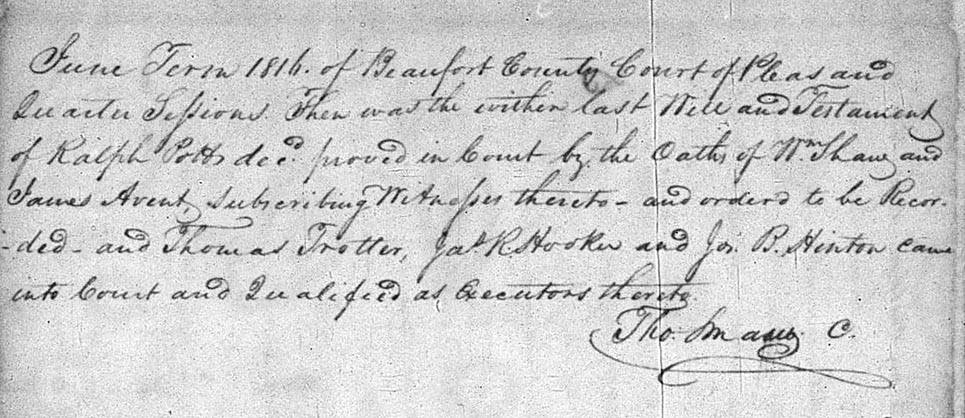 June Term 1816. of Beaufort County Court of Pleas and
Quarter Sessions. Then was the within last Will and Testament
of Ralph Potts decd. proved in Court by the Oaths of Wm. Shaw and
James Avent, Subscribing Witnesses thereto - and orderd to be Recor-
-ded - and Thomas Trotter, Jas. R. Hooker and Jos. B. Hinton came
into Court and Qualified as Executors thereto.
Tho. Smaw C.